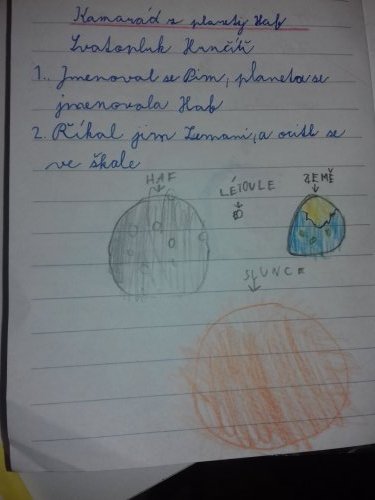 Kamarád z planety Haf
Svatopluk Hrnčíř
1. Jmenoval se Bim, planeta se
jmenovala Haf
2. Říkal jim Zemani, a ocitl se
ve škale
HAF
LÉTOULE
ZEMĚ
SLUNCE